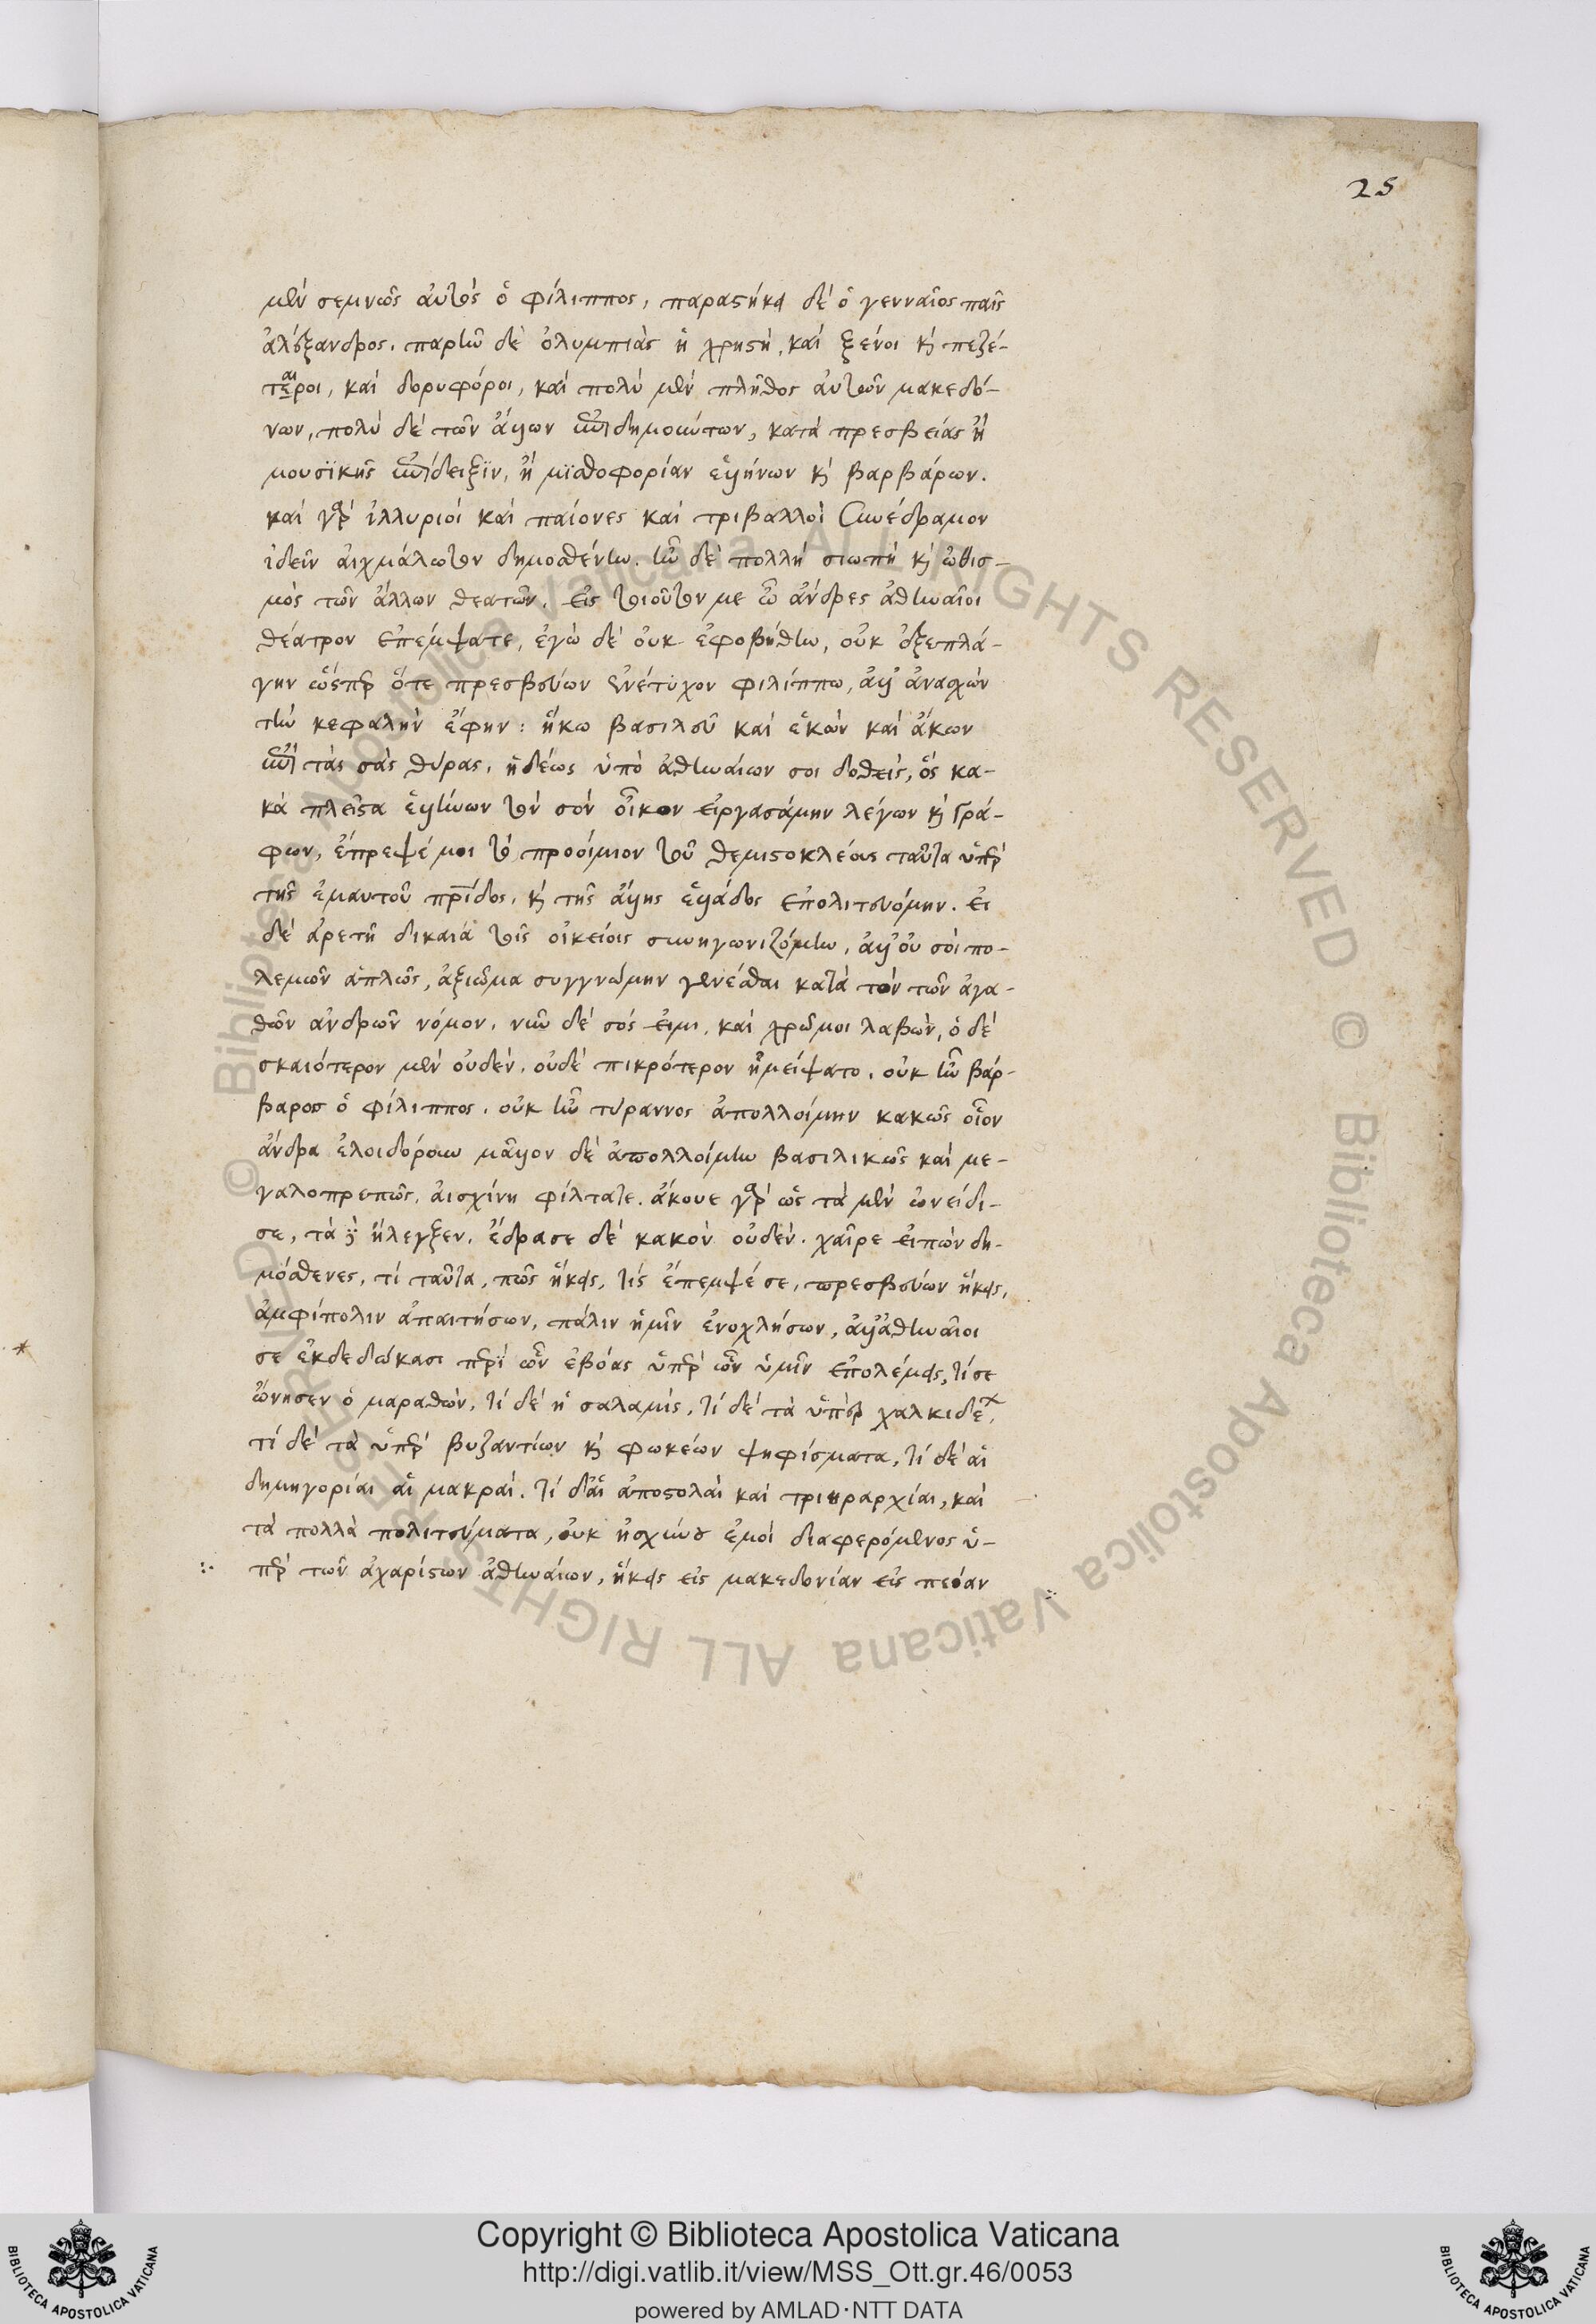 25
μὲν σεμνῶς αὐτὸς ὁ φίλιππος, παραστήκει δὲ ὁ γενναῖος παῖς
ἀλέξανδρος. παρῆν δὲ ὀλυμπιὰς ἡ χρηστή, καὶ ξένοι καὶ πεζέ-
ταιροι, καὶ δορυφόροι, καὶ πολὺ μὲν πλῆθος αὐτῶν μακεδό-
νων, πολὺ δὲ τῶν ἄλλων ἐπιδημούντων, κατὰ πρεσβείας ἢ
μουσϊκῆς ἐπίδειξϊν, ἢ μϊσθοφορίαν ἑλλήνων καὶ βαρβάρων.
καὶ γὰρ ἰλλυριοὶ καὶ παίονες καὶ τριβαλλοὶ συνέδραμον
ἰδεῖν αἰχμάλωτον δημοσθένην. ἦν δὲ πολλὴ σιωπὴ καὶ ὠθισ-
μὸς τῶν ἄλλων θεατῶν. εἰς τοιοῦτον με ὦ ἄνδρες ἀθηναῖοι
θέατρον ἐπέμψατε, ἐγὼ δὲ οὐκ ἐφοβήθην, οὐκ ἐξεπλά-
γην ὥσπερ ὅτε πρεσβεύων ἐνέτυχον φιλίππω, ἀλλ' ἀνασχὼν
τὴν κεφαλὴν ἔφην: ἥκω βασιλεῦ καὶ ἑκὼν καὶ ἄκων
ἐπὶ τὰς σὰς θύρας, ἡδέως ὑπὸ ἀθηναίων σοι δοθεὶς, ὃς κα-
κὰ πλεῖστα ἑλλήνων τὸν σὸν οἶκον εἰργασάμην λέγων καὶ γρά-
φων, ἔπρεψέ μοι τὸ προοίμιον τοῦ θεμιστοκλέους ταῦτα ὑπὲρ
τῆς ἐμαυτοῦ πρίδος, καὶ τῆς ἄλλης ἑλλάδος ἐπολιτευόμην. εἰ
δὲ ἀρετῆ δικαιὰ τοῖς οἰκείοις συνηγωνιζόμην, ἀλλ' οὐ σοὶ πο-
λεμῶν ἁπλῶς, ἀξιῶμα συγγνώμην γενέσθαι κατὰ τὸν τῶν ἀγα-
θῶν ἀνδρῶν νόμον, νῦν δὲ σός εἰμι, καὶ χρῶμοι λαβών, ὁ δὲ
σκαιότερον μὲν οὐδὲν, οὐδὲ πικρότερον ἠμείψατο. οὐκ ἦν βάρ-
βαρος ὁ φίλιππος, οὐκ ἦν τύραννος ἀπολλοίμην κακῶς οἷον
ἄνδρα ἐλοιδόρουν μᾶλλον δὲ ἀπολλοίμην βασιλικῶς καὶ με-
γαλοπρεπῶς, αἰσχίνη φίλτατε. ἄκουε γὰρ ὡς τὰ μὲν ὠνείδι-
σε, τὰ δὲ ἤλεγξεν, ἔδρασε δὲ κακὸν οὐδέν. χαῖρε εἰπὼν δη-
μόσθενες, τί ταῦτα, πῶς ἥκεις, τίς ἔπεμψέ σε, πρεσβεύων ἥκεις,
ἀμφίπολιν ἀπαιτήσων, πάλιν ἡμῖν ἐνοχλήσων, ἀλλ' ἀθηναῖοι
σε ἐκδεδώκασι περὶ ὧν ἐβόας ὑπὲρ ὧν ὑμῖν ἐπολέμεις, τί σε
ὤνησεν ὁ μαραθών, τί δὲ ἡ σαλαμὶς, τί δὲ τὰ ὑπὲρ χαλκιδε,
τί δὲ τὰ ὑπὲρ βυζαντίων καὶ φωκέων ψηφίσματα, τί δὲ αἱ
δημηγορίαι αἱ μακραί. τί δ' αἱ ἀποστολαὶ καὶ τριηραρχίαι, καὶ
τὰ πολλὰ πολιτεύματα, οὐκ ἠσχύνου ἐμοὶ διαφερόμενος ὑ-
πὲρ τῶν ἀχαρίστων ἀθηναίων, ἥκεις εἰς μακεδονίαν εἰς πεσαν
© Biblioteca Apostolica Vaticana ALL RIGHTS RESERVED
Copyright © Biblioteca Apostolica Vaticana
http://digi.vatlib.it/view/MSS_Ott.gr.46/0053
powered by AMLAD·NTT DATA
BIBLIOTECA APOSTOLICA VATICANA
BIBLIOTECA APOSTOLICA VATICANA